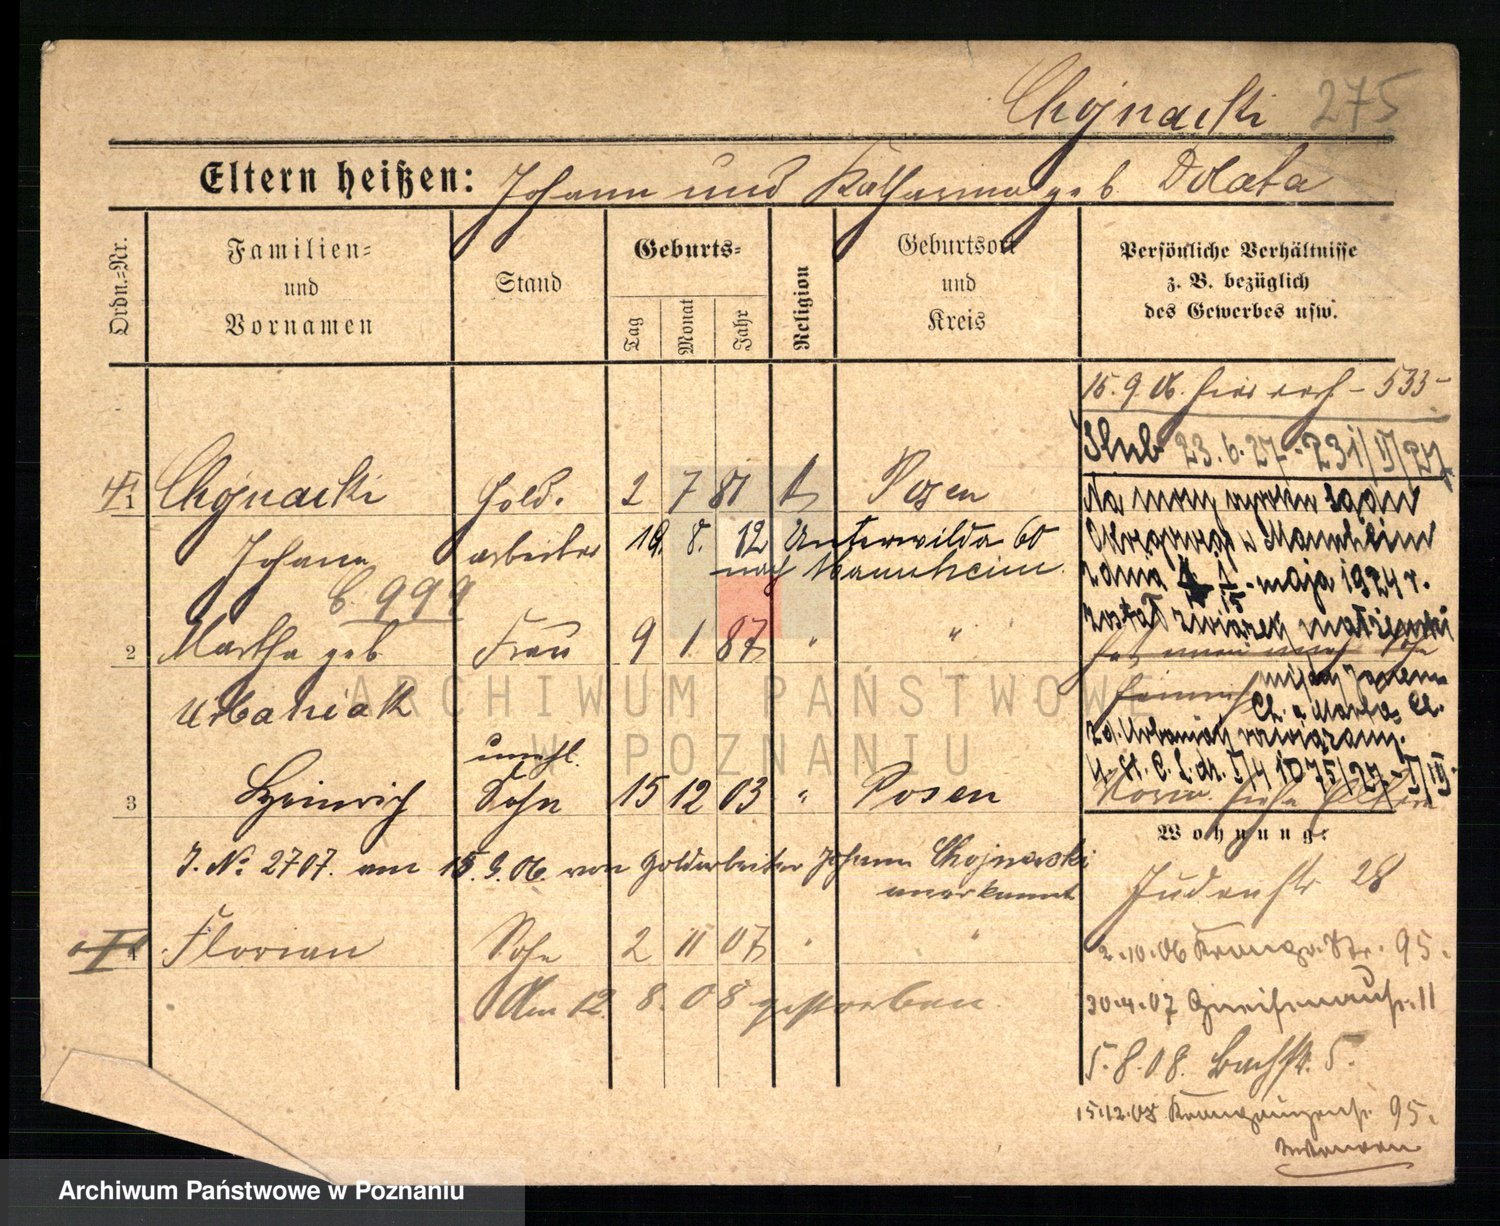 Chojnacki 275
Eltern heißen: Johann und Katharina geb. Dolata
Ordn.=Nr.
Familien=
und
Vornamen
Stand
Geburts=
Tag
Monat
Jahr
Religion
Geburtsort
und
Kreis
Persönliche Verhältnisse
z. B. bezüglich
des Gewerbes usw.
15.9.06. - 533 -
Ślub 23.6.27 - 231/II/27
1 Chojnacki Gold- 2 7 81 k Posen
Johann arbeiter 19. 8. 12 Unterwilda 60
nach Mannheim
999
2 Martha geb Frau 9 1. 87 " "
Urbaniak
Na mocy wyroku Sądu
Okręgowego w Mannheim
z dnia 15 maja 1924 r.
został związek małżeński
Heinrich
Ch. a Martą Ch.
zd. Urbaniak rozwiązany.
unehl.
3 Heinrich Sohn 15 12 03 " Posen
J. No 2707. am 15.9.06. von Goldarbeiter Johann Chojnacki
anerkannt
4 Florian Sohn 2 11 07 " "
Am 12. 8. 08 gestorben
Wohnung:
Judenstr 28
2.10.06 Str. 95.
30.4.07 Gneisenaustr. 11
5.8.08. Bachstr. 5.
15.12.08 95.
ARCHIWUM PAŃSTWOWE
W POZNANIU
Archiwum Państwowe w Poznaniu